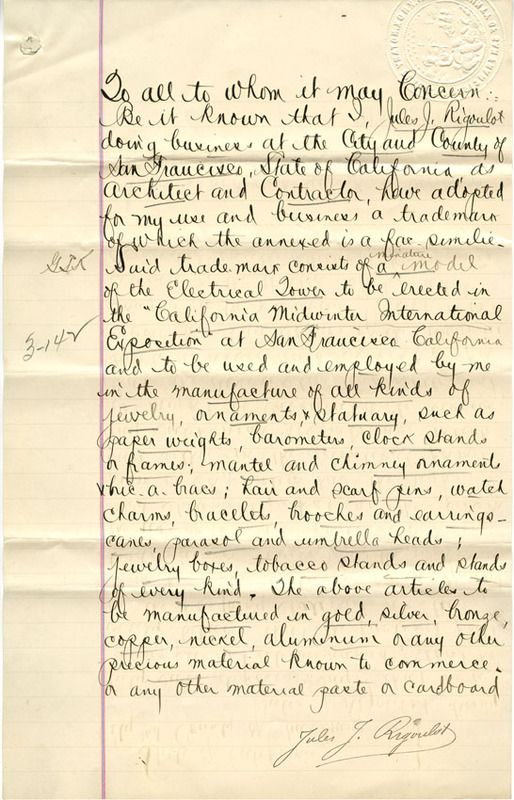 To all to whom it may Concern:
Be it known that I, Jules J. Rigoulot
doing business at the City and County of
San Francisco, State of California, as
Architect and Contractor, have adopted
for my use and business a trademark
of which the annexed is a fac-similie
Said trademark consists of a miniature model
of the Electrical Tower to be erected in
the "California Midwinter International
Exposition" at San Francisco California
and to be used and employed by me
in the manufacture of all kinds of
jewelry, ornaments, & statuary, such as
paper weights, barometers, clock stands
or frames, mantel and chimney ornaments
& bric-a-bracs; hair and scarf pins, watch
charms, bracelets, brooches and earrings-
canes, parasol and umbrella heads;
jewelry boxes, tobacco stands and stands
of every kind. The above articles to
be manufactured in gold, silver, bronze,
copper, nickel, aluminum or any other
precious material known to commerce.
or any other material paste or cardboard
Jules J. Rigoulot
3-142